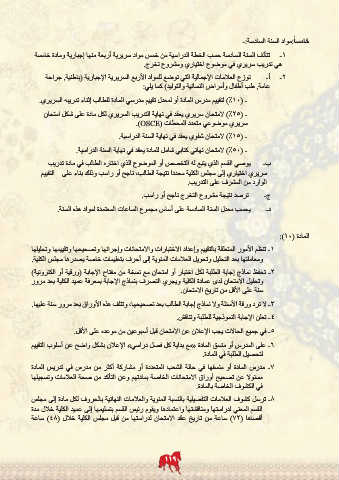 خامساً:مواد السنة السادسة:-
١- تتألف السنة السادسة حسب الخطة الدراسية من خمس مواد سريرية أربعة منها إجبارية ومادة خامسة
هي تدريب سريري في موضوع اختياري ومشروع تخرج.
٢- أ- توزع العلامات الإجمالية التي توضع للمواد الأربع السريرية الإجبارية (باطنية, جراحة
عامة, طب أطفال وأمراض النسائية والتوليد) كما يلي:
- (١٠٪) لتقييم مدرس المادة أو لمعدل تقييم مدرسي المادة للطالب إثناء تدريبه السريري.
- (٢٥٪) لامتحان سريري يعقد في نهاية التدريب السريري لكل مادة على شكل امتحان
سريري موضوعي متعدد المحطات (OSCE).
- (١٥٪) لامتحان شفوي يعقد في نهاية السنة الدراسية.
- (٥٠٪) لامتحان نهائي كتابي شامل للمادة يعقد في نهاية السنة الدراسية.
ب- يوصي القسم الذي يتبع له التخصص أو الموضوع الذي اختاره الطالب في مادة تدريب
سريري اختياري إلى مجلس الكلية محددا نتيجة الطالب، ناجح أو راسب وذلك بناء على التقييم
الوارد من المشرف على التدريب.
ج- ترصد نتيجة مشروع التخرج ناجح أو راسب.
د- يحسب معدل السنة السادسة على أساس مجموع الساعات المعتمدة لمواد هذه السنة.
المادة (١٠):
١- تنظم الأمور المتعلقة بالتقييم وإعداد الاختبارات والامتحانات وإجرائها وتصحيحها وتقييمها وتحليلها
ومعاملتها بعد التحليل وتحويل العلامات المئوية إلى أحرف بتعليمات خاصة يصدرها مجلس الكلية.
٢- تحفظ نماذج إجابة الطلبة لكل اختبار أو امتحان مع نسخة من مفتاح الإجابة (ورقية أو الكترونية)
وتحليل الامتحان لدى عمادة الكلية ويجري التصرف بنماذج الإجابة بمعرفة عميد الكلية بعد مرور
سنة على الأقل من تاريخ الامتحان.
٣- لا ترد ورقة الأسئلة ولا نماذج إجابة الطالب بعد تصحيحها، وتتلف هذه الأوراق بعد مرور سنة عليها.
٤- تعلن الإجابة النموذجية للطلبة وتناقش.
٥- في جميع الحالات يجب الإعلان عن الامتحان قبل أسبوعين من موعده على الأقل.
٦- على المدرس أو منسق المادة «مع بداية كل فصل دراسي» الإعلان بشكل واضح عن أسلوب التقييم
لتحصيل الطلبة في المادة.
٧- مدرس المادة أو منسقها في حالة الشعب المتعددة أو مشاركة أكثر من مدرس في تدريس المادة
مسئولا عن تصحيح أوراق الامتحانات الخاصة بمادتهم وعن التأكد من صحة العلامات وتسجيلها
في الكشوف الخاصة بالمادة.
٨- ترسل كشوف العلامات التفصيلية بالنسبة المئوية والعلامات النهائية بالحروف لكل مادة إلى مجلس
القسم المعني لدراستها ومناقشتها واعتمادها ويقوم رئيس القسم بتسليمها إلى عميد الكلية خلال مدة
أقصاها (٧٢) ساعة من تاريخ عقد الامتحان لدراستها من قبل مجلس الكلية خلال (٤٨) ساعة